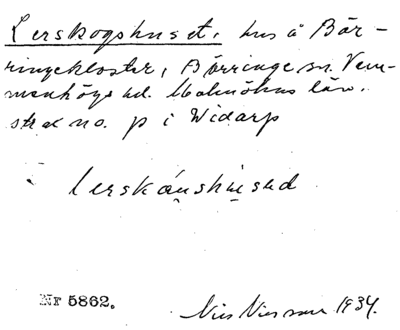 Lerskogshuset, hus å Bör-
ringekloster, Börringe sn. Vem-
menhögs hd. Malmöhus län.
strax no. p i Widarp
lerskåushúsed
Nr 5862.
Nils Nilsson 1934.